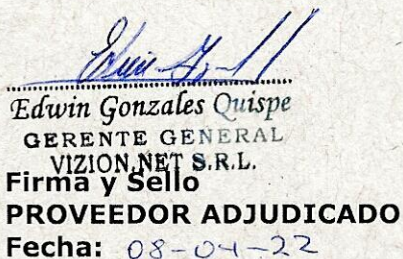 Edwin Gonzales Quispe
GERENTE GENERAL
VIZION.NET S.R.L.
Firma y Sello
PROVEEDOR ADJUDICADO
Fecha: 08-04-22